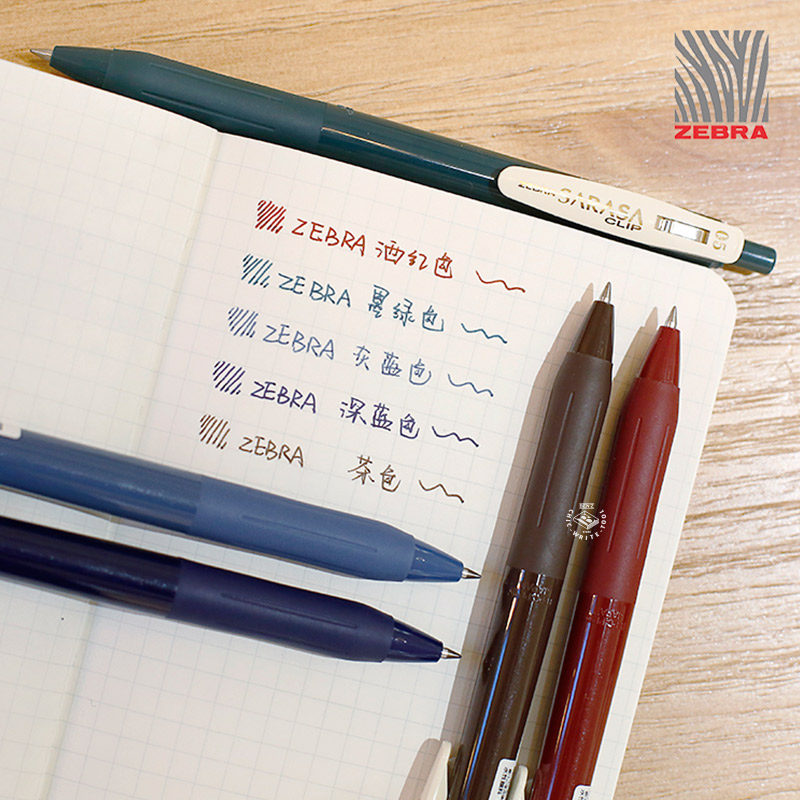 ZEBRA
ZEBRA SARASA
CLIP
0.5
ZEBRA 酒红色
ZEBRA 墨绿色
ZEBRA 灰蓝色
ZEBRA 深蓝色
ZEBRA 茶色